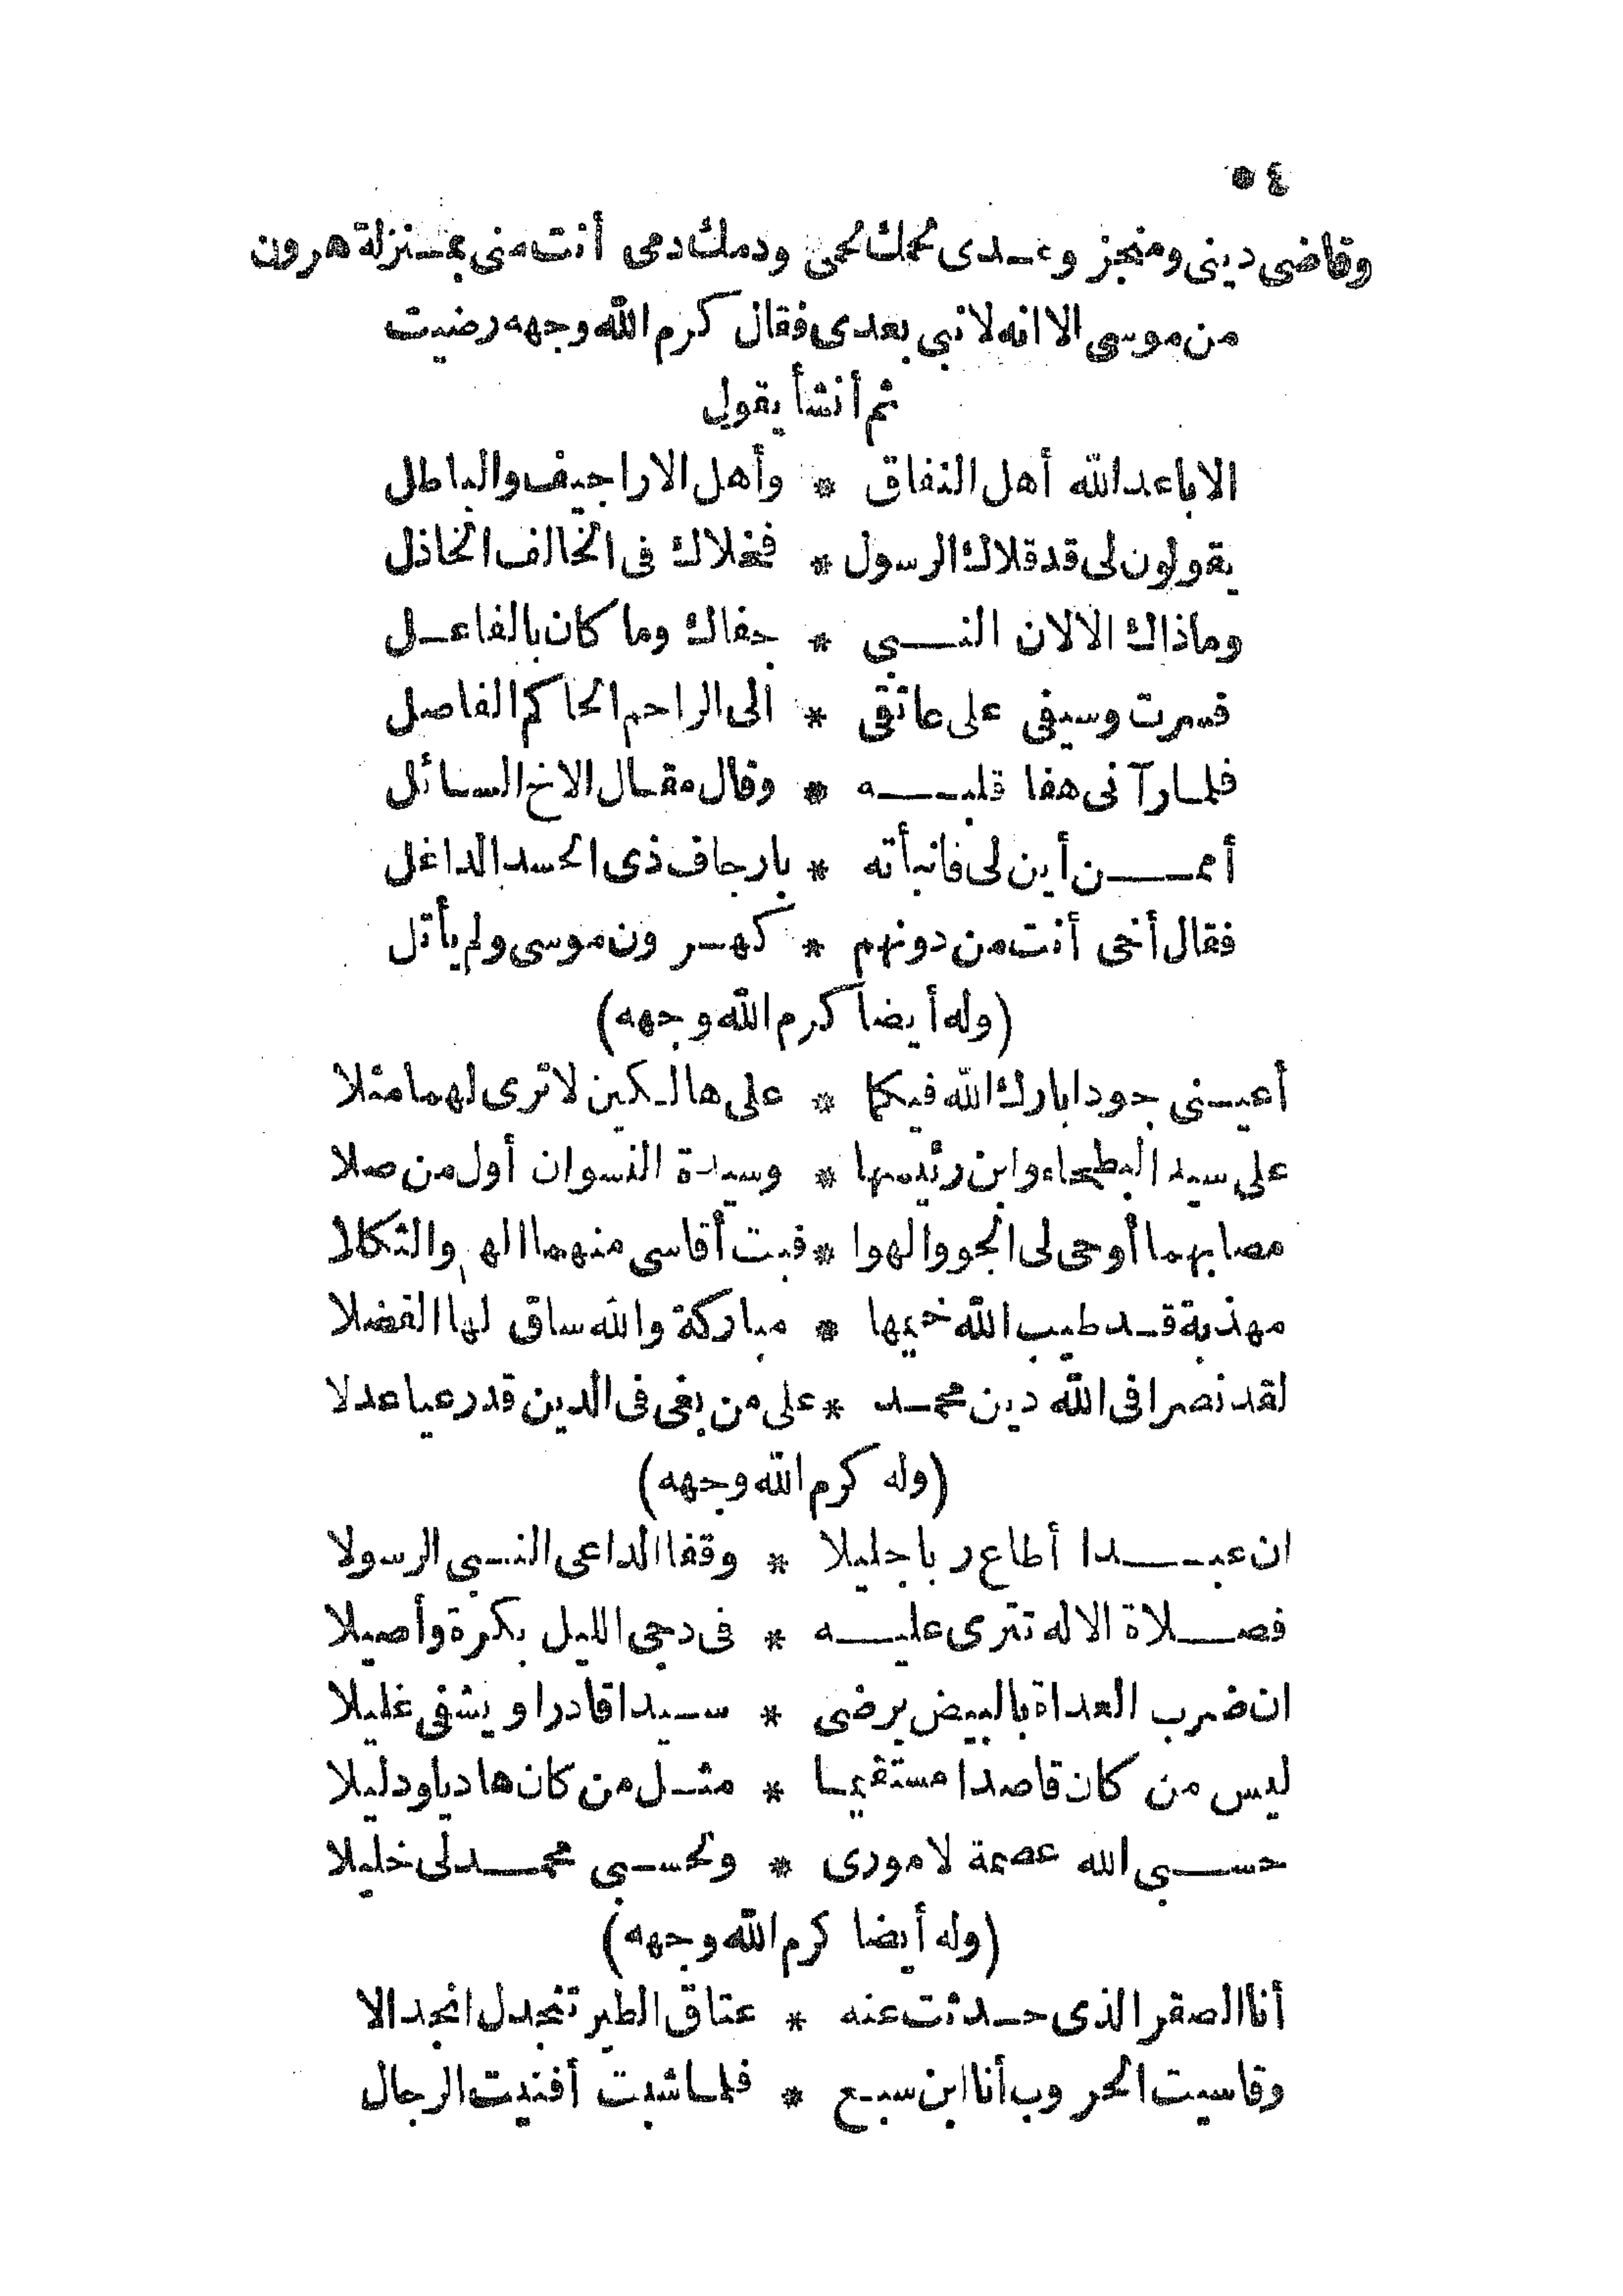 ٥٤
وقاضى دينى ومنجز وعدى لحمك لحمى ودمك دمى أنت منى بمنزلة هرون
من موسى الا انه لا نبي بعدى فقال كرم الله وجهه رضيت
ثم أنشأ يقول
الا باعد الله أهل النفاق * وأهل الاراجيف والباطل
يقولون لى قد قلاك الرسول * فخلاك فى الخالف الخاذل
وماذاك الا لان النبي * جفاك وما كان بالفاعل
فسرت وسيفى على عاتقى * الى الراحم الحاكم الفاصل
فلما رآنى هفا قلبه * وقال مقال الاخ السائل
أممن أين لى فانبأته * بارجاف ذى الحسد الداغل
فقال أخى أنت من دونهم * كهرون موسى ولم يأتل
(وله أيضا كرم الله وجهه)
أعينى جودا بارك الله فيكما * على هالكين لا ترى لهما مثلا
على سيد البطحاء وابن رئيسها * وسيدة النسوان أول من صلا
مصابهما أوحى لى الجو والهوا * فبت أقاسى منهما الهم والثكلا
مهذبة قد طيب الله خيمها * مباركة والله ساق لها الفضلا
لقد نصرا فى الله دين محمد * على من بغى فى الدين قد رعيا عدلا
(وله كرم الله وجهه)
ان عبدا أطاع ربا جليلا * وقفا الداعى النبي الرسولا
فصلاة الاله تترى عليه * فى دجى الليل بكرة وأصيلا
ان ضرب العداة بالبيض يرضى * سيدا قادرا و يشفى غليلا
ليس من كان قاصدا مستقيما * مثل من كان هاديا ودليلا
حسبى الله عصمة لامورى * ولحسبى محمد لى خليلا
(وله أيضا كرم الله وجهه)
أنا الصقر الذى حدثت عنه * عتاق الطير تنجدل انجدالا
وقاسيت الحروب أنا ابن سبع * فلما شبت أفنيت الرجال